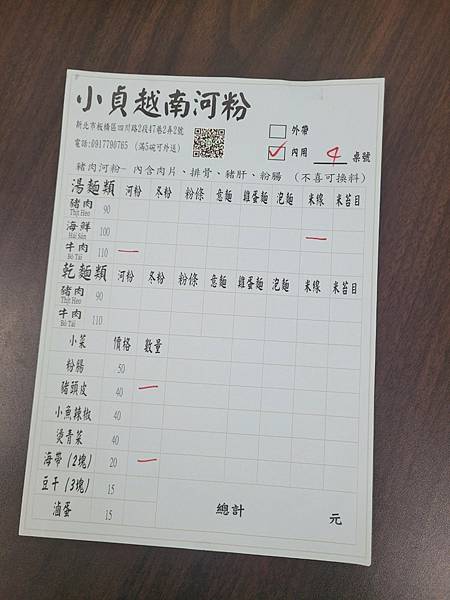 小貞越南河粉
新北市板橋區四川路2段47巷2弄2號
電話:0917790765 (滿5碗可外送)
外帶
內用 4 桌號
豬肉河粉- 內含肉片、排骨、豬肝、粉腸 (不喜可換料)
湯麵類 河粉 冬粉 粉條 意麵 雞蛋麵 泡麵 米線 米苔目
豬肉 90
Thịt Heo
海鮮 100 一
Hải Sản
牛肉 110 一
Bò Tái
乾麵類 河粉 冬粉 粉條 意麵 雞蛋麵 泡麵 米線 米苔目
豬肉 90
Thịt Heo
牛肉 110
Bò Tái
小菜 價格 數量
粉腸 50
豬頭皮 40 一
小魚辣椒 40
燙青菜 40
海帶(2塊) 20 一
豆干(3塊) 15
滷蛋 15
總計 元